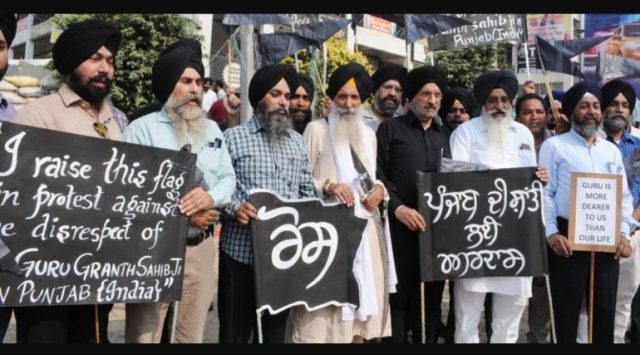 I raise this flag
in protest against
e disrespect of
GURU GRANTH SAHIB JI
N PUNJAB {India}
ਰੋਸ
ਪੰਜਾਬ ਦੀ ਸ਼ਾਂਤੀ
ਲਈ
ਅਰਦਾਸ
GURU IS
MORE
DEARER
TO US
THAN
OUR LIFE.
SAHIB JI
PUNJAB {India}